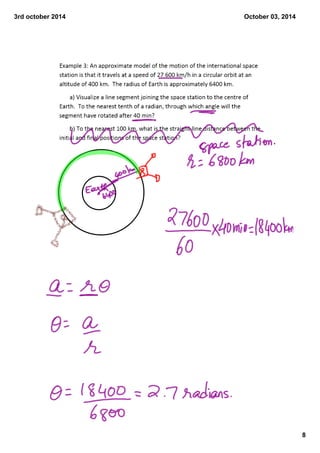 3rd october 2014
October 03, 2014
Example 3: An approximate model of the motion of the international space
station is that it travels at a speed of 27 600 km/h in a circular orbit at an
altitude of 400 km. The radius of Earth is approximately 6400 km.
a) Visualize a line segment joining the space station to the centre of
Earth. To the nearest tenth of a radian, through which angle will the
segment have rotated after 40 min?
b) To the nearest 100 km, what is the straight-line distance between the
initial and final positions of the space station?
space station.
r = 6800 km
400 km
Earth
6400
27600/60 x 40min = 18400 km
a = rθ
θ = a/r
θ = 18400/6800 = 2.7 radians.
8